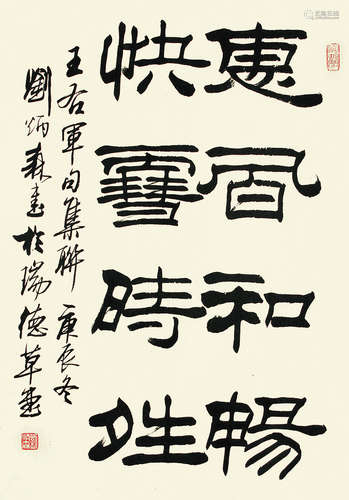 惠風和暢
快雪時晴
王右軍句集聯 庚辰冬
劉炳森書於瑞德草堂